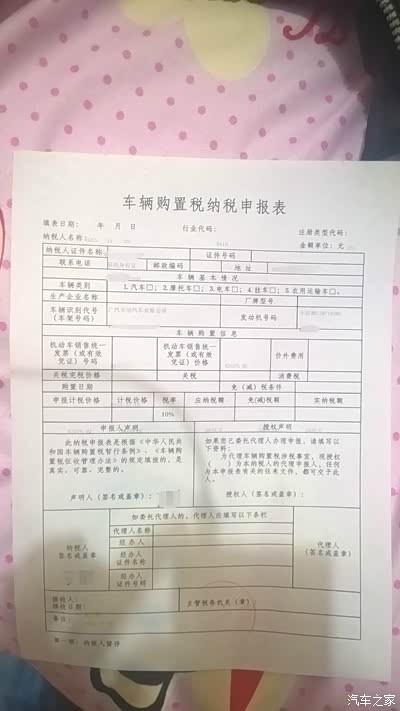 车辆购置税纳税申报表
填表日期： 年 月 日 行业代码： 注册类型代码：
纳税人名称： 金额单位：元
纳税人证件名称 证件号码
联系电话 邮政编码 地址
车辆基本情况
车辆类别 1.汽车□；2.摩托车□；3.电车□；4.挂车□；5.农用运输车□。
生产企业名称 厂牌型号
车辆识别代号（车架号码） 发动机号码
车辆购置信息
机动车销售统一发票（或有效凭证）号码 机动车销售统一发票（或有效凭证）价格 价外费用
关税完税价格 关税 消费税
购置日期 免（减）税条件
申报计税价格 计税价格 税率 应纳税额 免(减)税额 实纳税额
10%
申报人声明 授权声明
此纳税申报表是根据《中华人民共和国车辆购置税暂行条例》、《车辆购置税征收管理办法》的规定填报的，是真实、可靠、完整的。
声明人（签名或盖章）：
如果您已委托代理人办理申报，请填写以下资料：
为代理车辆购置税涉税事宜，现授权（ ）为本纳税人的代理申报人，任何与本申报表有关的往来文件，都可交予此人。
授权人（签名或盖章）：
如委托代理人的，代理人应填写以下各栏
纳税人签名或盖章
代理人名称
经办人
经办人证件名称
经办人证件号码
代理人（签名或盖章）
接收人：
接收日期 主管税务机关（章）：
备注：
第一联：纳税人留存
汽车之家